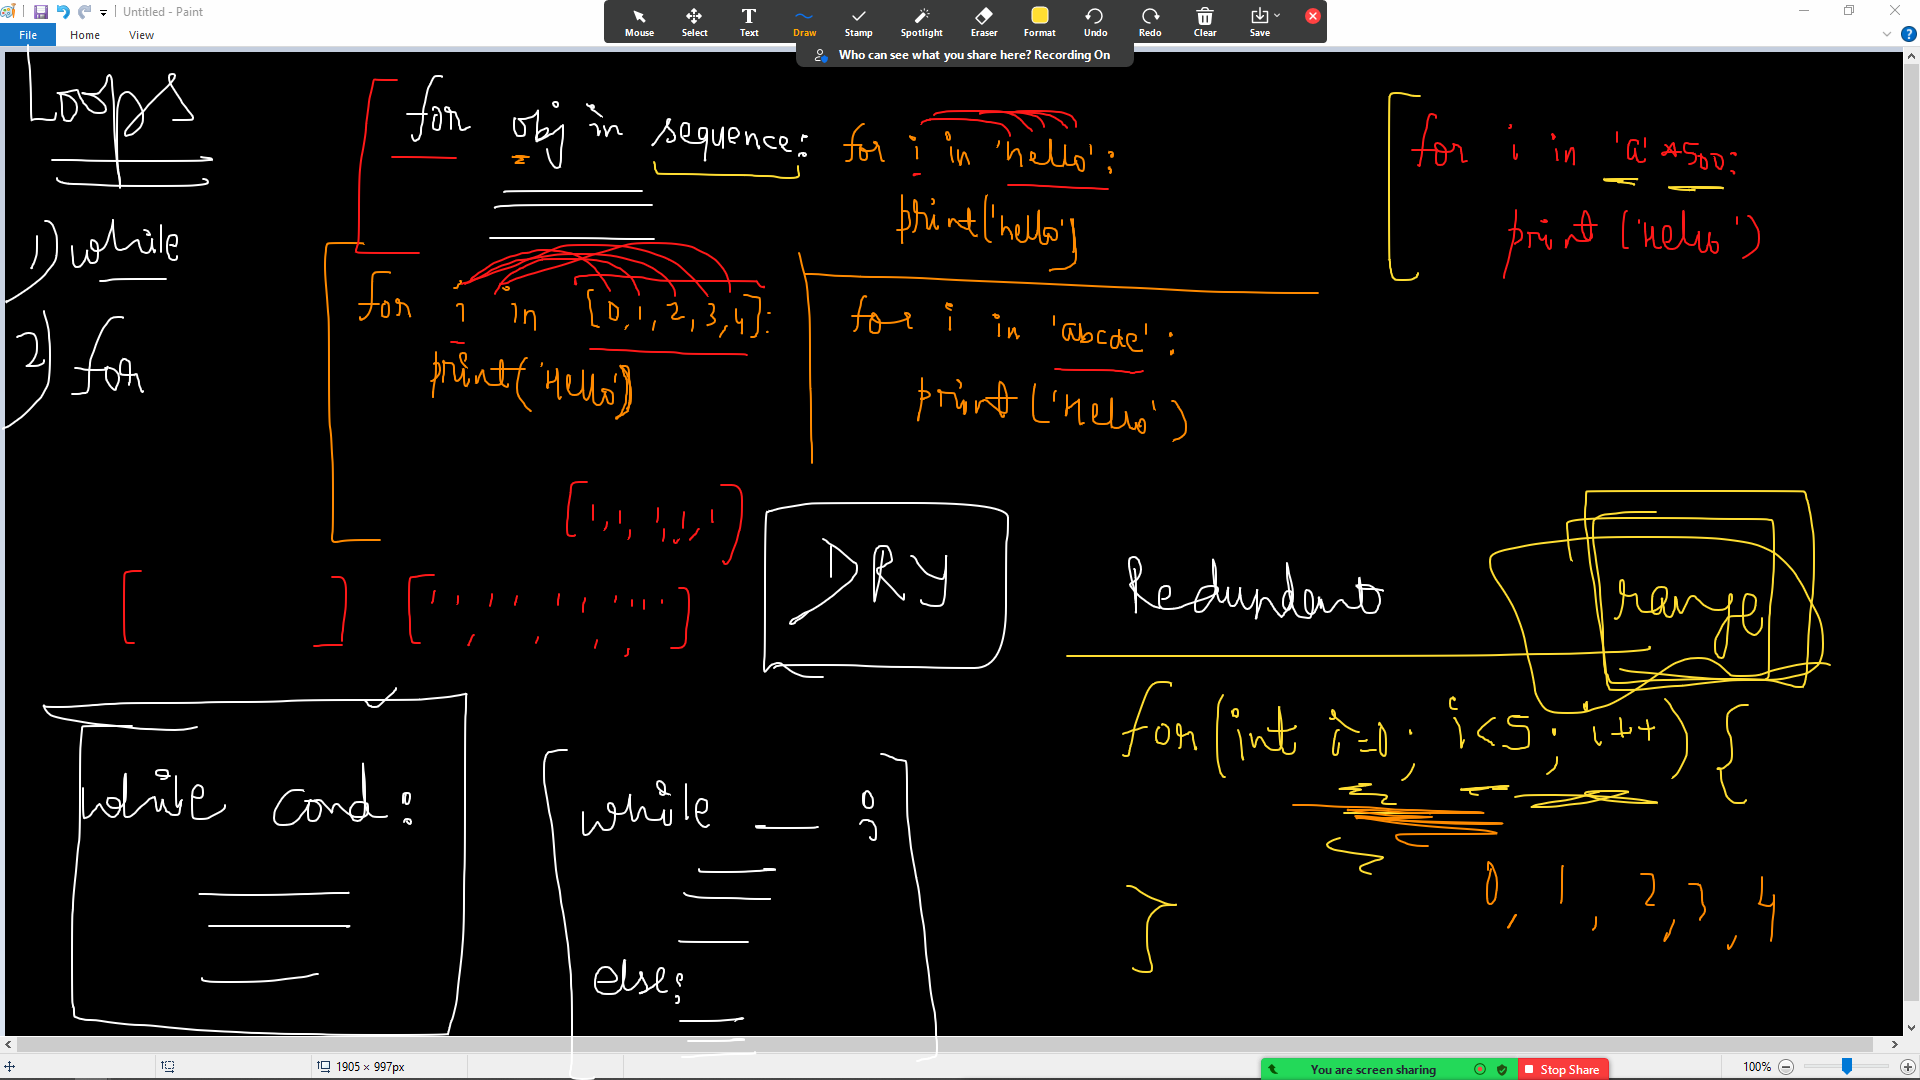 Untitled - Paint
File Home View
Mouse Select Text Draw Stamp Spotlight Eraser Format Undo Redo Clear Save
Who can see what you share here? Recording On
Loops
1) while
2) for
for obj in sequence:
for i in 'hello':
print('hello')
for i in 'a'*500:
print ('Hello')
for i in [0,1,2,3,4]:
print('Hello')
for i in 'abcde':
print ('Hello')
[1,1,1,1,1]
[ ]
DRY
Redundant
range
for(int i=0; i<5; i++) {
0, 1, 2, 3, 4
}
while cond:
while __ :
else:
1905 × 997px
You are screen sharing
Stop Share
100%